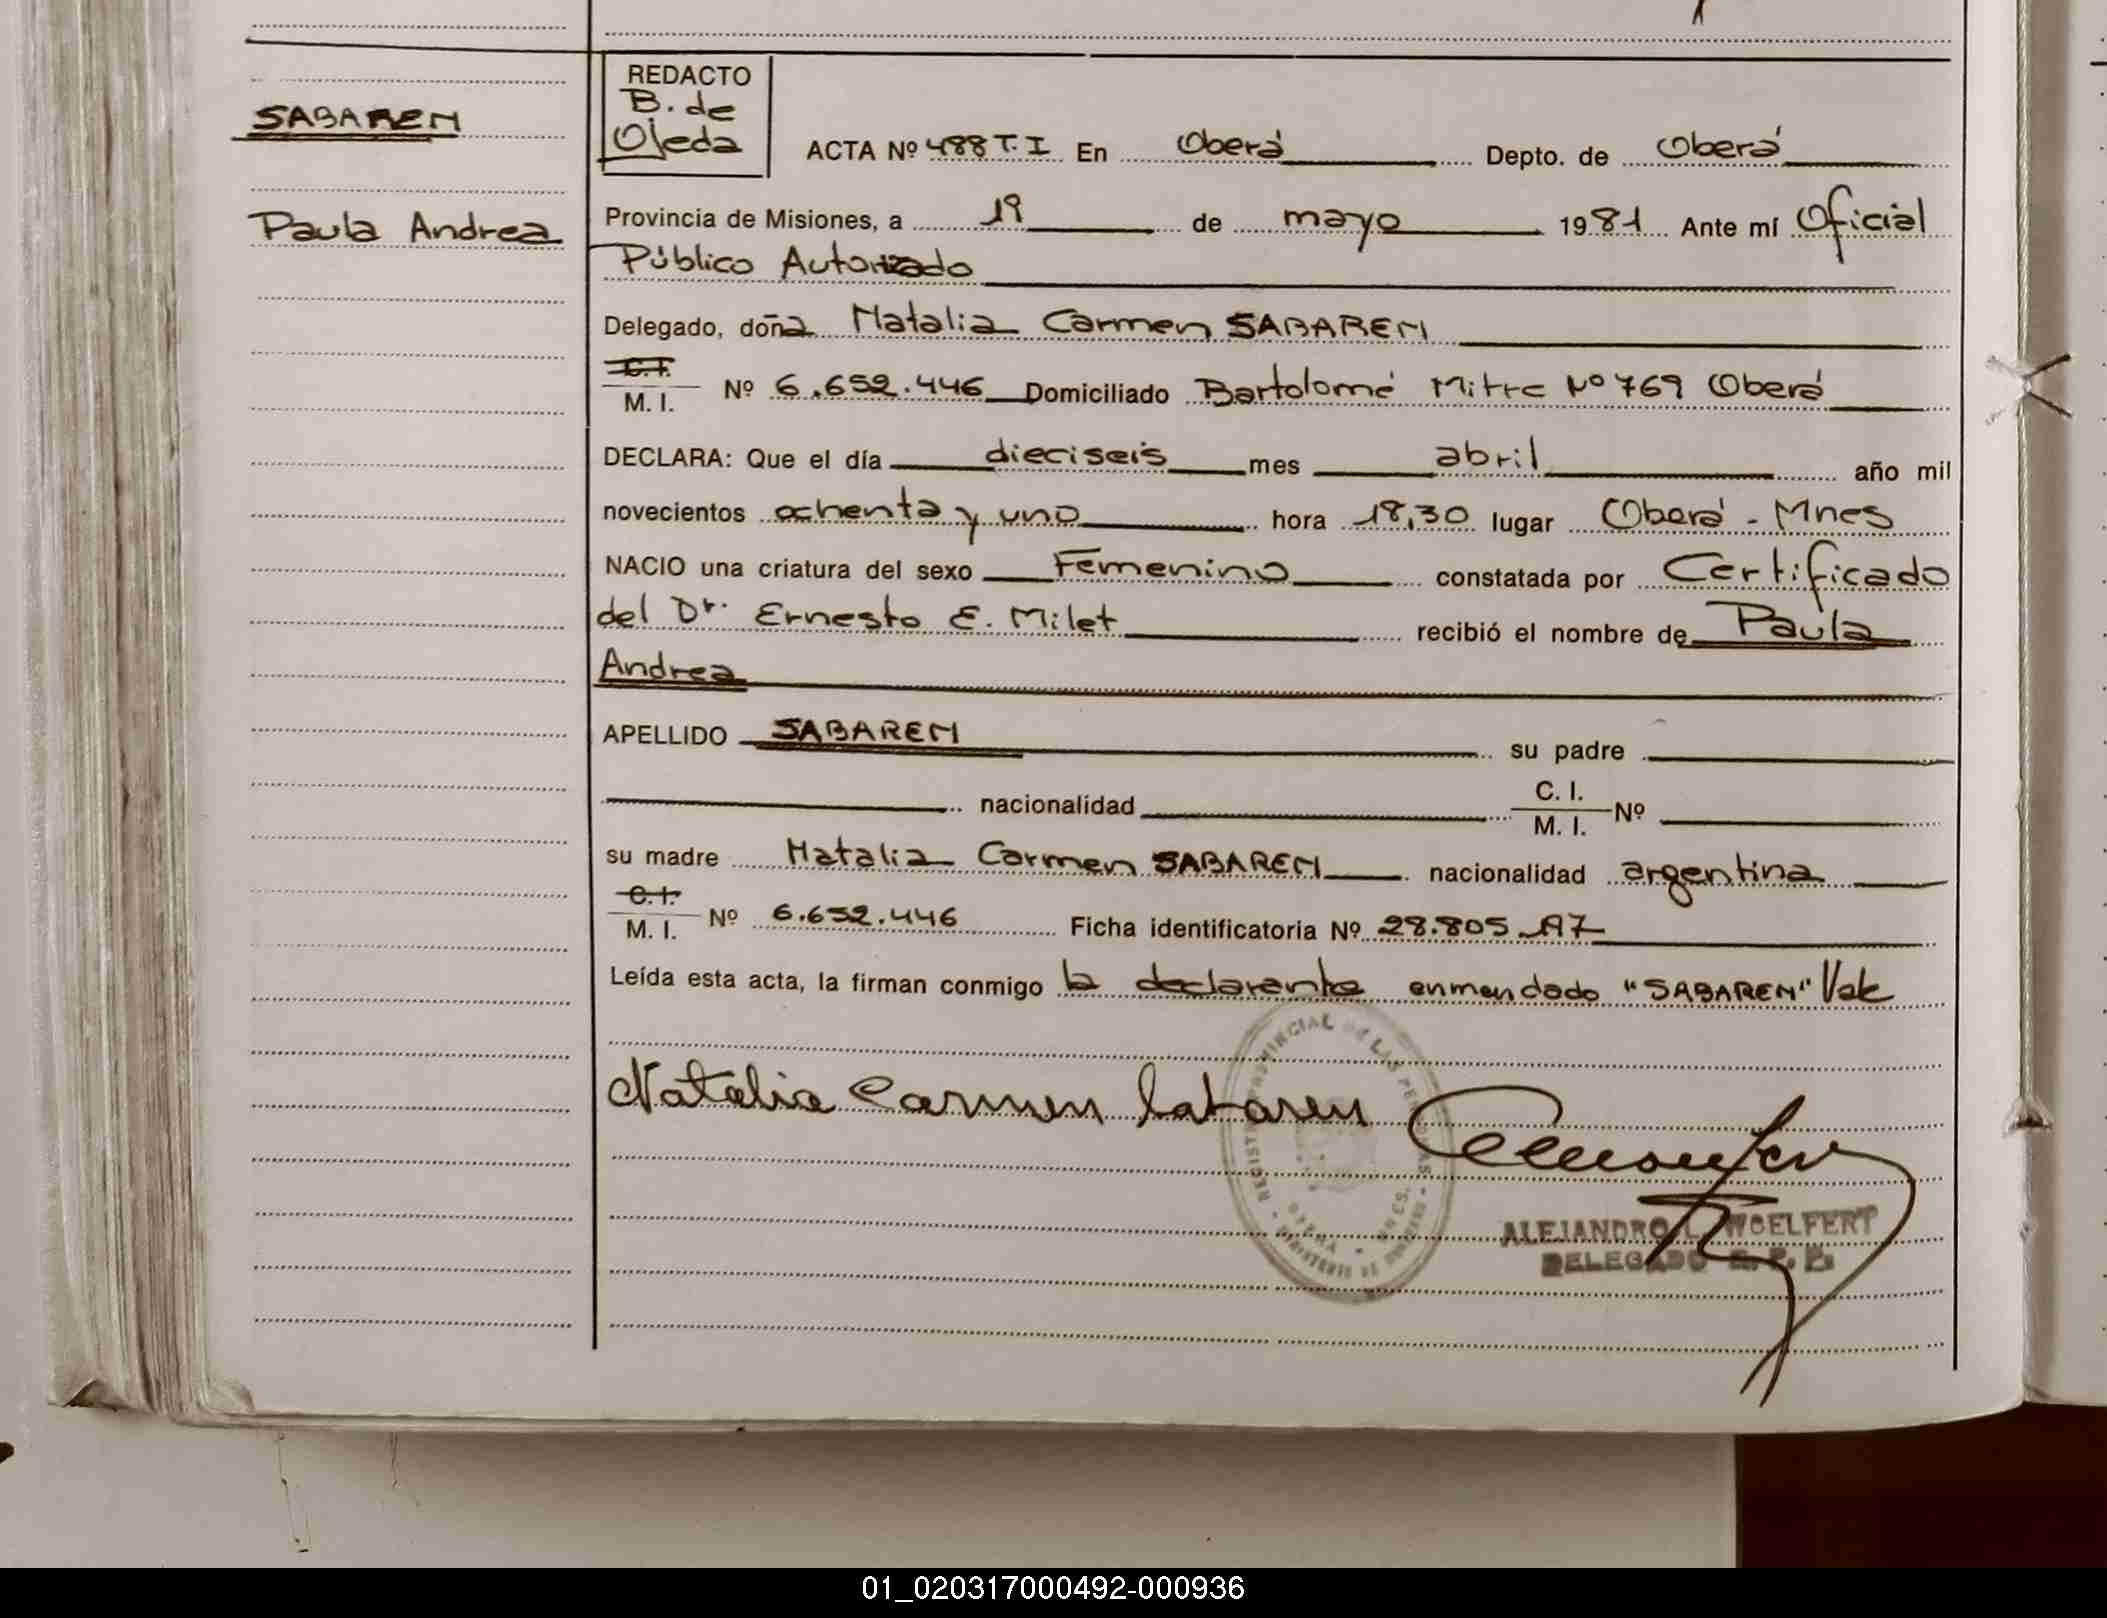 SABAREN
Paula Andrea
REDACTO
B. de
Ojeda
ACTA Nº 488 T. I En Oberá Depto. de Oberá
Provincia de Misiones, a 19 de mayo 1981 Ante mí Oficial
Público Autorizado
Delegado, doña Natalia Carmen SABAREN
C. I.
M. I. Nº 6.652.446 Domiciliado Bartolomé Mitre Nº 769 Oberá
DECLARA: Que el día dieciseis mes abril año mil
novecientos ochenta y uno hora 18,30 lugar Oberá - Mnes
NACIO una criatura del sexo Femenino constatada por Certificado
del Dr. Ernesto E. Milet recibió el nombre de Paula
Andrea
APELLIDO SABAREN su padre
nacionalidad C. I.
M. I. Nº
su madre Natalia Carmen SABAREN nacionalidad argentina
C. I.
M. I. Nº 6.652.446 Ficha identificatoria Nº 28.805.
Leída esta acta, la firman conmigo la declarante enmendado "SABAREN" Vale
Natalia Carmen Sabaren
REGISTRO PROVINCIAL DE LAS PERSONAS - MINISTERIO DE GOBIERNO
OBERA - MNES.
ALEJANDRO L. WOELFERT
DELEGADO R. P. P.
01_020317000492-000936